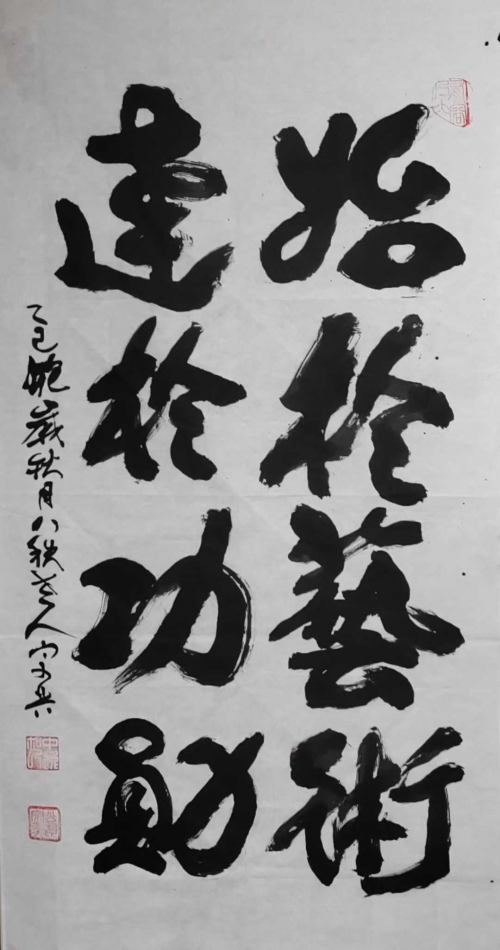 始於藝術
達於功勛
乙巳蛇歲秋月八秩老人